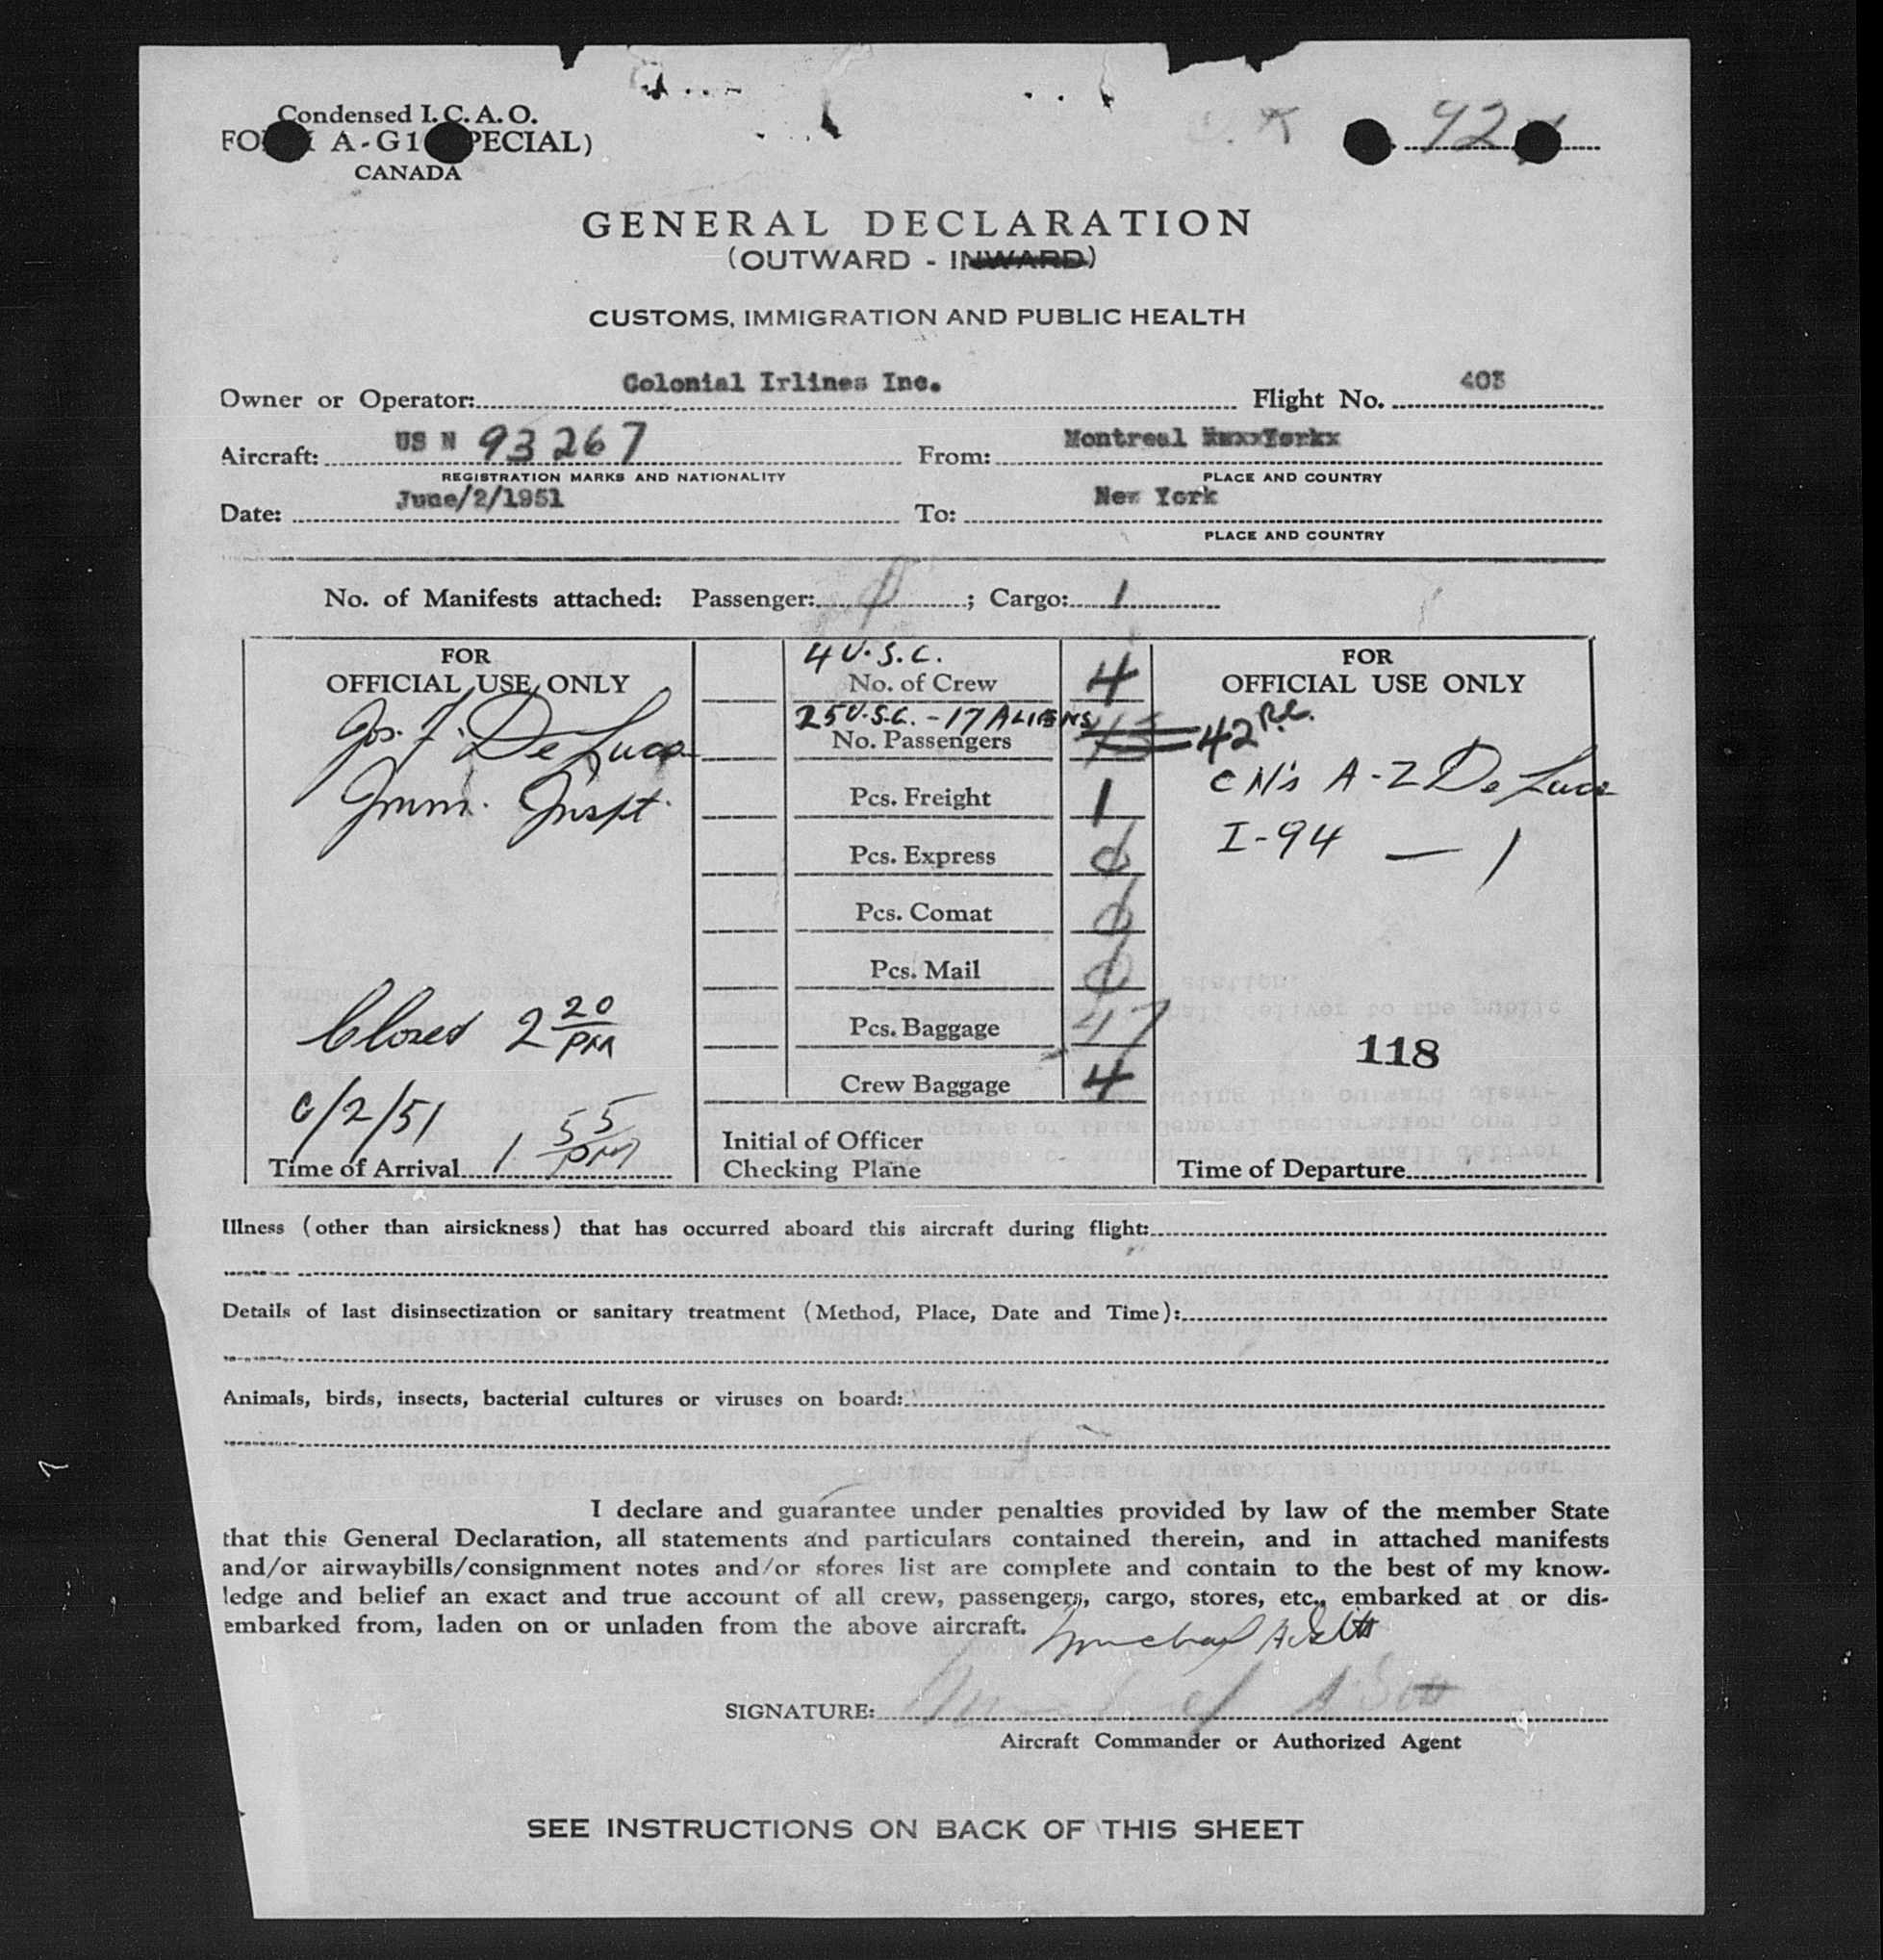 Condensed I.C.A.O.
FO A-G1 PECIAL)
CANADA
92
GENERAL DECLARATION
(OUTWARD - INWARD)
CUSTOMS, IMMIGRATION AND PUBLIC HEALTH
Owner or Operator: Colonial Irlines Inc. Flight No. 403
Aircraft: US N 93267 From: Montreal
REGISTRATION MARKS AND NATIONALITY PLACE AND COUNTRY
Date: June/2/1951 To: New York
PLACE AND COUNTRY
No. of Manifests attached: Passenger: 0; Cargo: 1
FOR
OFFICIAL USE ONLY
Jos. F. De Luca
Imm. Inspt.
Closed 2 20 PM
6/2/51
Time of Arrival 1 55 PM
4 U.S.C.
No. of Crew 4
25 U.S.C. - 17 ALIENS
No. Passengers 42
Pcs. Freight 1
Pcs. Express 0
Pcs. Comat 0
Pcs. Mail 0
Pcs. Baggage 47
Crew Baggage 4
Initial of Officer
Checking Plane
FOR
OFFICIAL USE ONLY
CN's A-Z De Luca
I-94 — 1
118
Time of Departure
Illness (other than airsickness) that has occurred aboard this aircraft during flight:
Details of last disinsectization or sanitary treatment (Method, Place, Date and Time):
Animals, birds, insects, bacterial cultures or viruses on board:
I declare and guarantee under penalties provided by law of the member State
that this General Declaration, all statements and particulars contained therein, and in attached manifests
and/or airwaybills/consignment notes and/or stores list are complete and contain to the best of my know-
ledge and belief an exact and true account of all crew, passengers, cargo, stores, etc., embarked at or dis-
embarked from, laden on or unladen from the above aircraft.
SIGNATURE:
Aircraft Commander or Authorized Agent
SEE INSTRUCTIONS ON BACK OF THIS SHEET